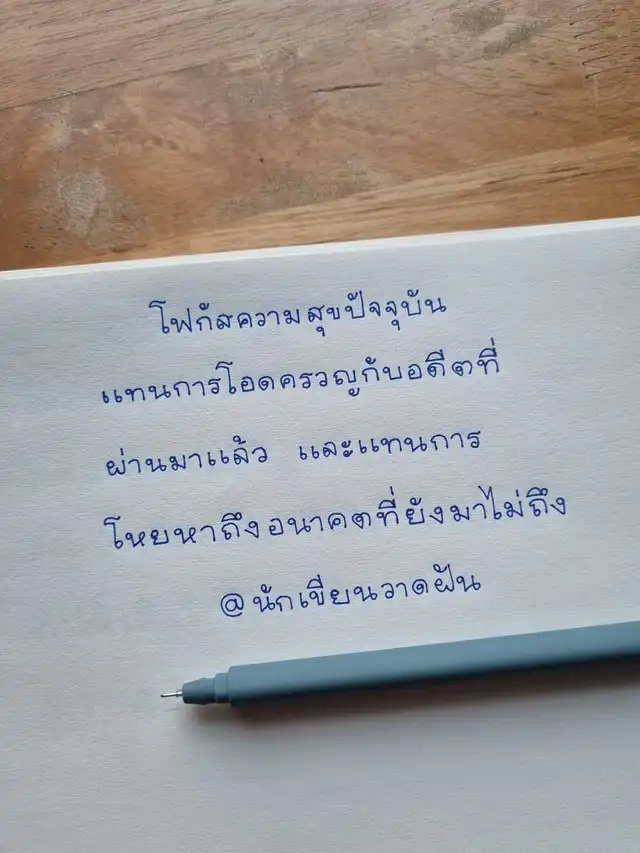 โฟกัสความสุขปัจจุบัน
แทนการโอดครวญกับอดีตที่
ผ่านมาแล้ว และแทนการ
โหยหาถึงอนาคตที่ยังมาไม่ถึง
@นักเขียนวาดฝัน